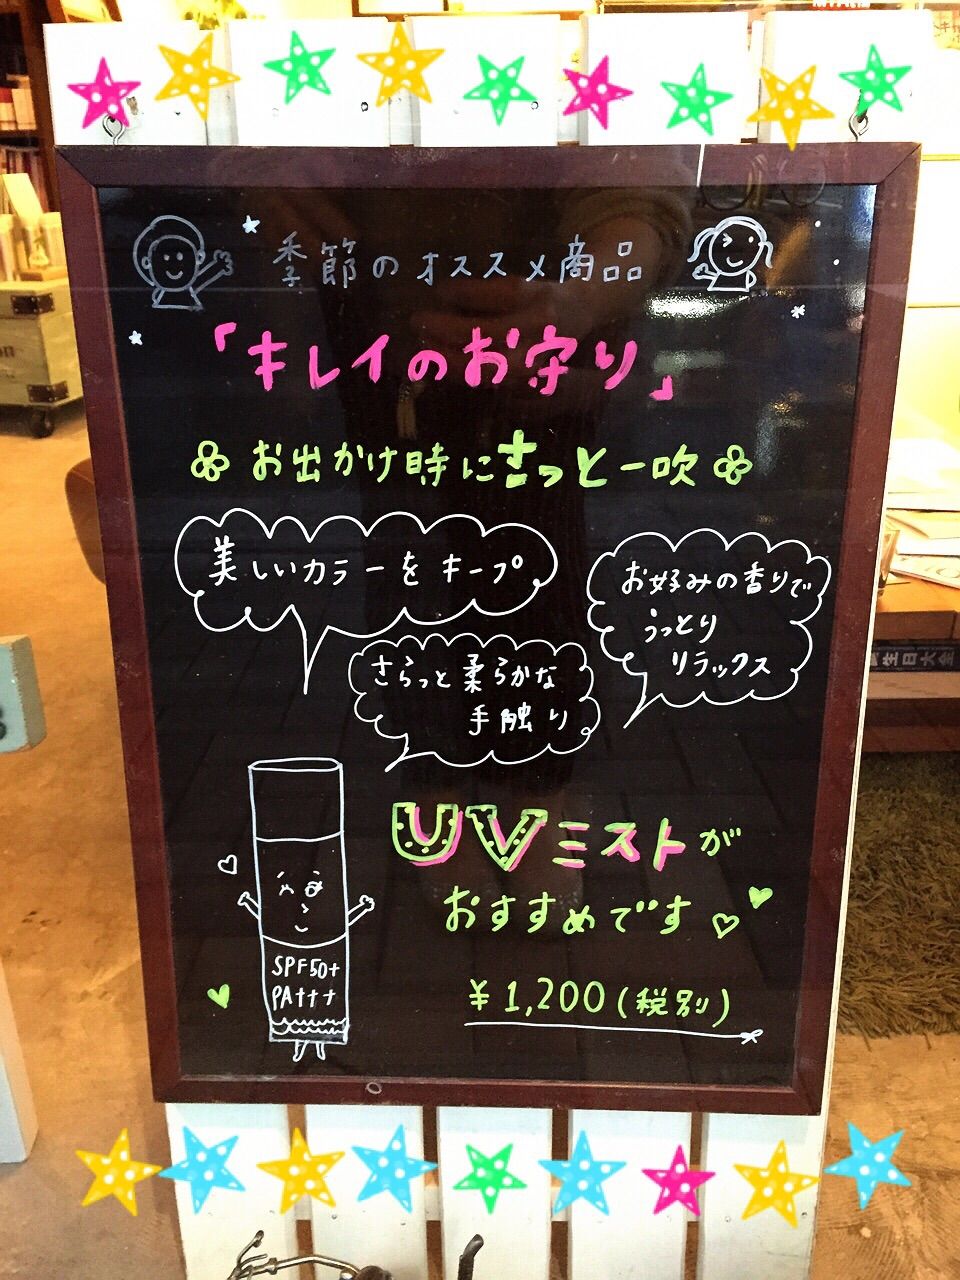 季節のオススメ商品
「キレイのお守り」
お出かけ時にさっと一吹
美しいカラーをキープ
お好みの香りで
うっとり
リラックス
さらっと柔らかな
手触り
UVミストが
おすすめです
SPF50+
PA+++
¥1,200(税別)
生日大全